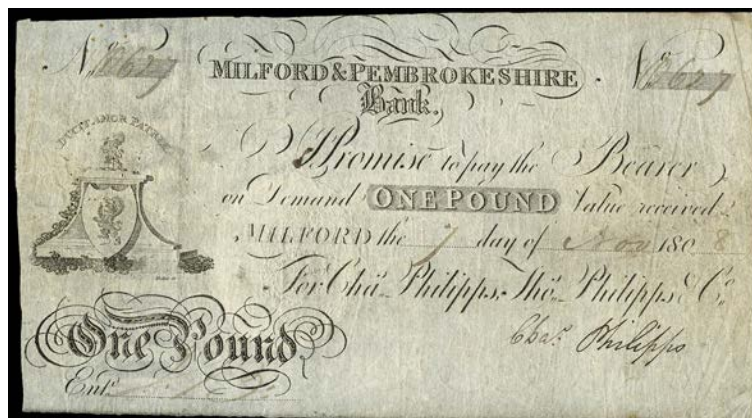 No
No
MILFORD & PEMBROKESHIRE
Bank.
DUCIT AMOR PATRIÆ
I Promise to pay the Bearer
on Demand ONE POUND Value received.
MILFORD the 7 day of Nov 1808
For Chas. Philipps, Thos. Philipps & Co.
One Pound
Chas. Philipps
Entd.